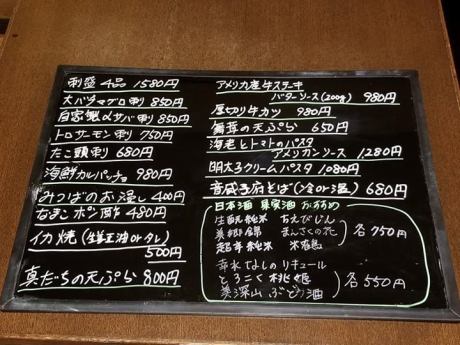 刺盛 4品 1580円
大バチマグロ刺 850円
自家製〆サバ刺 850円
トロサーモン刺 750円
たこ頭刺 680円
海鮮カルパッチョ 980円
みつばのお浸し 400円
なまこポン酢 480円
イカ焼(生姜正油orタレ)
500円
真たちの天ぷら 800円
アメリカ産牛ステーキ
バターソース(200g) 980円
厚切り牛カツ 980円
舞茸の天ぷら 650円
海老とトマトのパスタ
アメリカンソース 1280円
明太子クリームパスタ 1080円
音威子府そば(冷or温) 680円
日本酒 果実酒 おすすめ
生酛純米 ちえびじん
美郷錦 まんさくの花
超辛純米
各750円
なしのリキュール
とろこく桃姫
美深山ぶどう酒
各550円